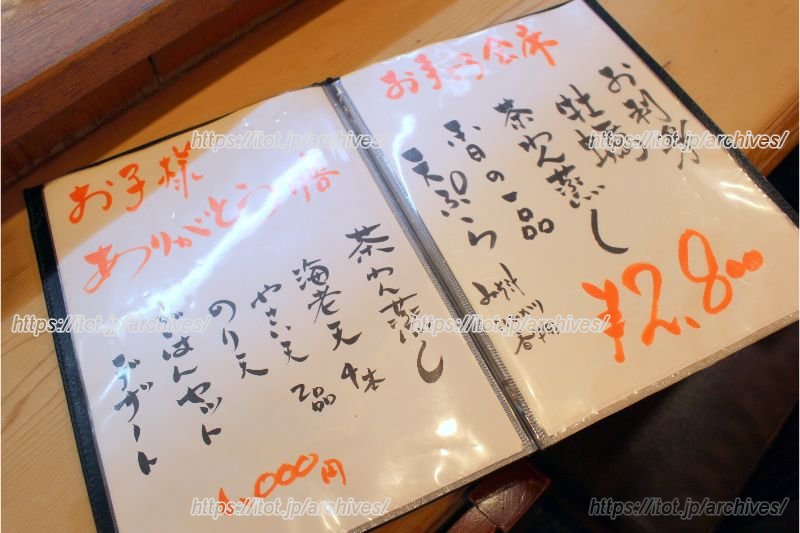 お手ごろ会席
お刺身
牡蠣
茶わん蒸し
本日の一品
天ぷら
みそ汁
香物
¥2,800
お子様
ありがとう膳
茶わん蒸し
海老天 4本
やさい天 2品
のり天
ごはんセット
デザート
1,000円
https://itot.jp/archives/
https://itot.jp/archives/
https://itot.jp/archives/
https://itot.jp/archives/
https://itot.jp/archives/
https://itot.jp/archives/
https://itot.jp/archives/